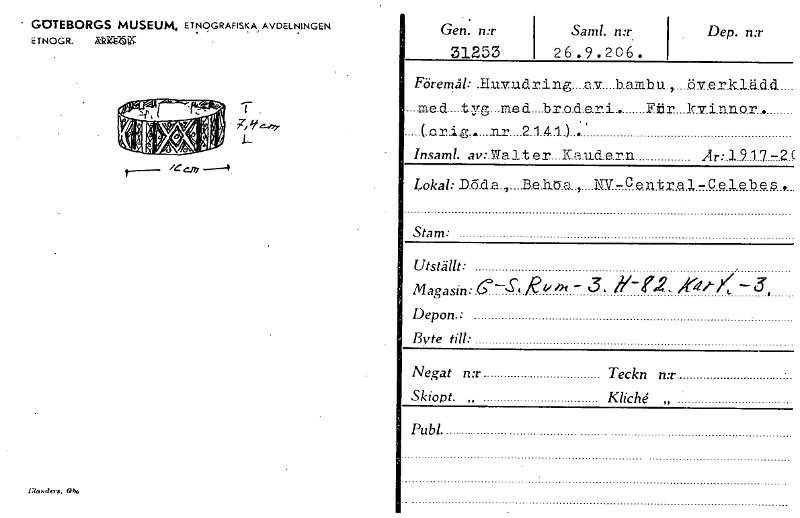 GÖTEBORGS MUSEUM, ETNOGRAFISKA AVDELNINGEN
ETNOGR. ARKEOL.
7,4 cm
16 cm
Elanders, Gbg
Gen. n:r Saml. n:r Dep. n:r
31253 26.9.206.
Föremål: Huvudring av bambu, överklädd
med tyg med broderi. För kvinnor.
(orig. nr 2141).
Insaml. av: Walter Kaudern År: 1917-20
Lokal: Dōda, Behōa, NV-Central-Celebes.
Stam:
Utställt:
Magasin: G-S. Rum-3. H-82. Kart. -3.
Depon.:
Byte till:
Negat n:r Teckn n:r
Skiopt. „ Kliché „
Publ.